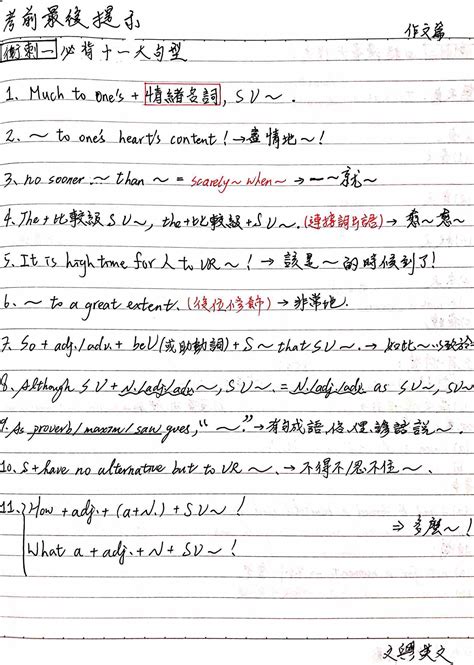 考前最後提示
作文篇
衝刺一 必背十一大句型
1. Much to one's + 情緒名詞, S V ~.
2. ~ to one's heart's content! → 盡情地~!
3. no sooner ~ than ~ = scarely~ when~ → 一~就~
4. The + 比較級 S V ~, the + 比較級 + S V ~. (連接詞片語) → 愈~愈~
5. It is high time for 人 to VR ~! → 該是~的時候到了!
6. ~ to a great extent. (後位修飾) → 非常地.
7. So + adj./adv. + beV(或助動詞) + S ~ that S V ~. → 如此~以致於
8. Although S V + N./adj./adv. ~, S V ~. = N./adj./adv. as S V ~, S V ~
9. As proverb/maxim/saw goes, " ~." → 有句成語、俗俚、諺語說~.
10. S + have no alternative but to VR ~. → 不得不/忍不住~.
11. How + adj. + (a+N.) + S V ~!
⇒ 多麼~!
What a + adj. + N + S V ~!
文興英文